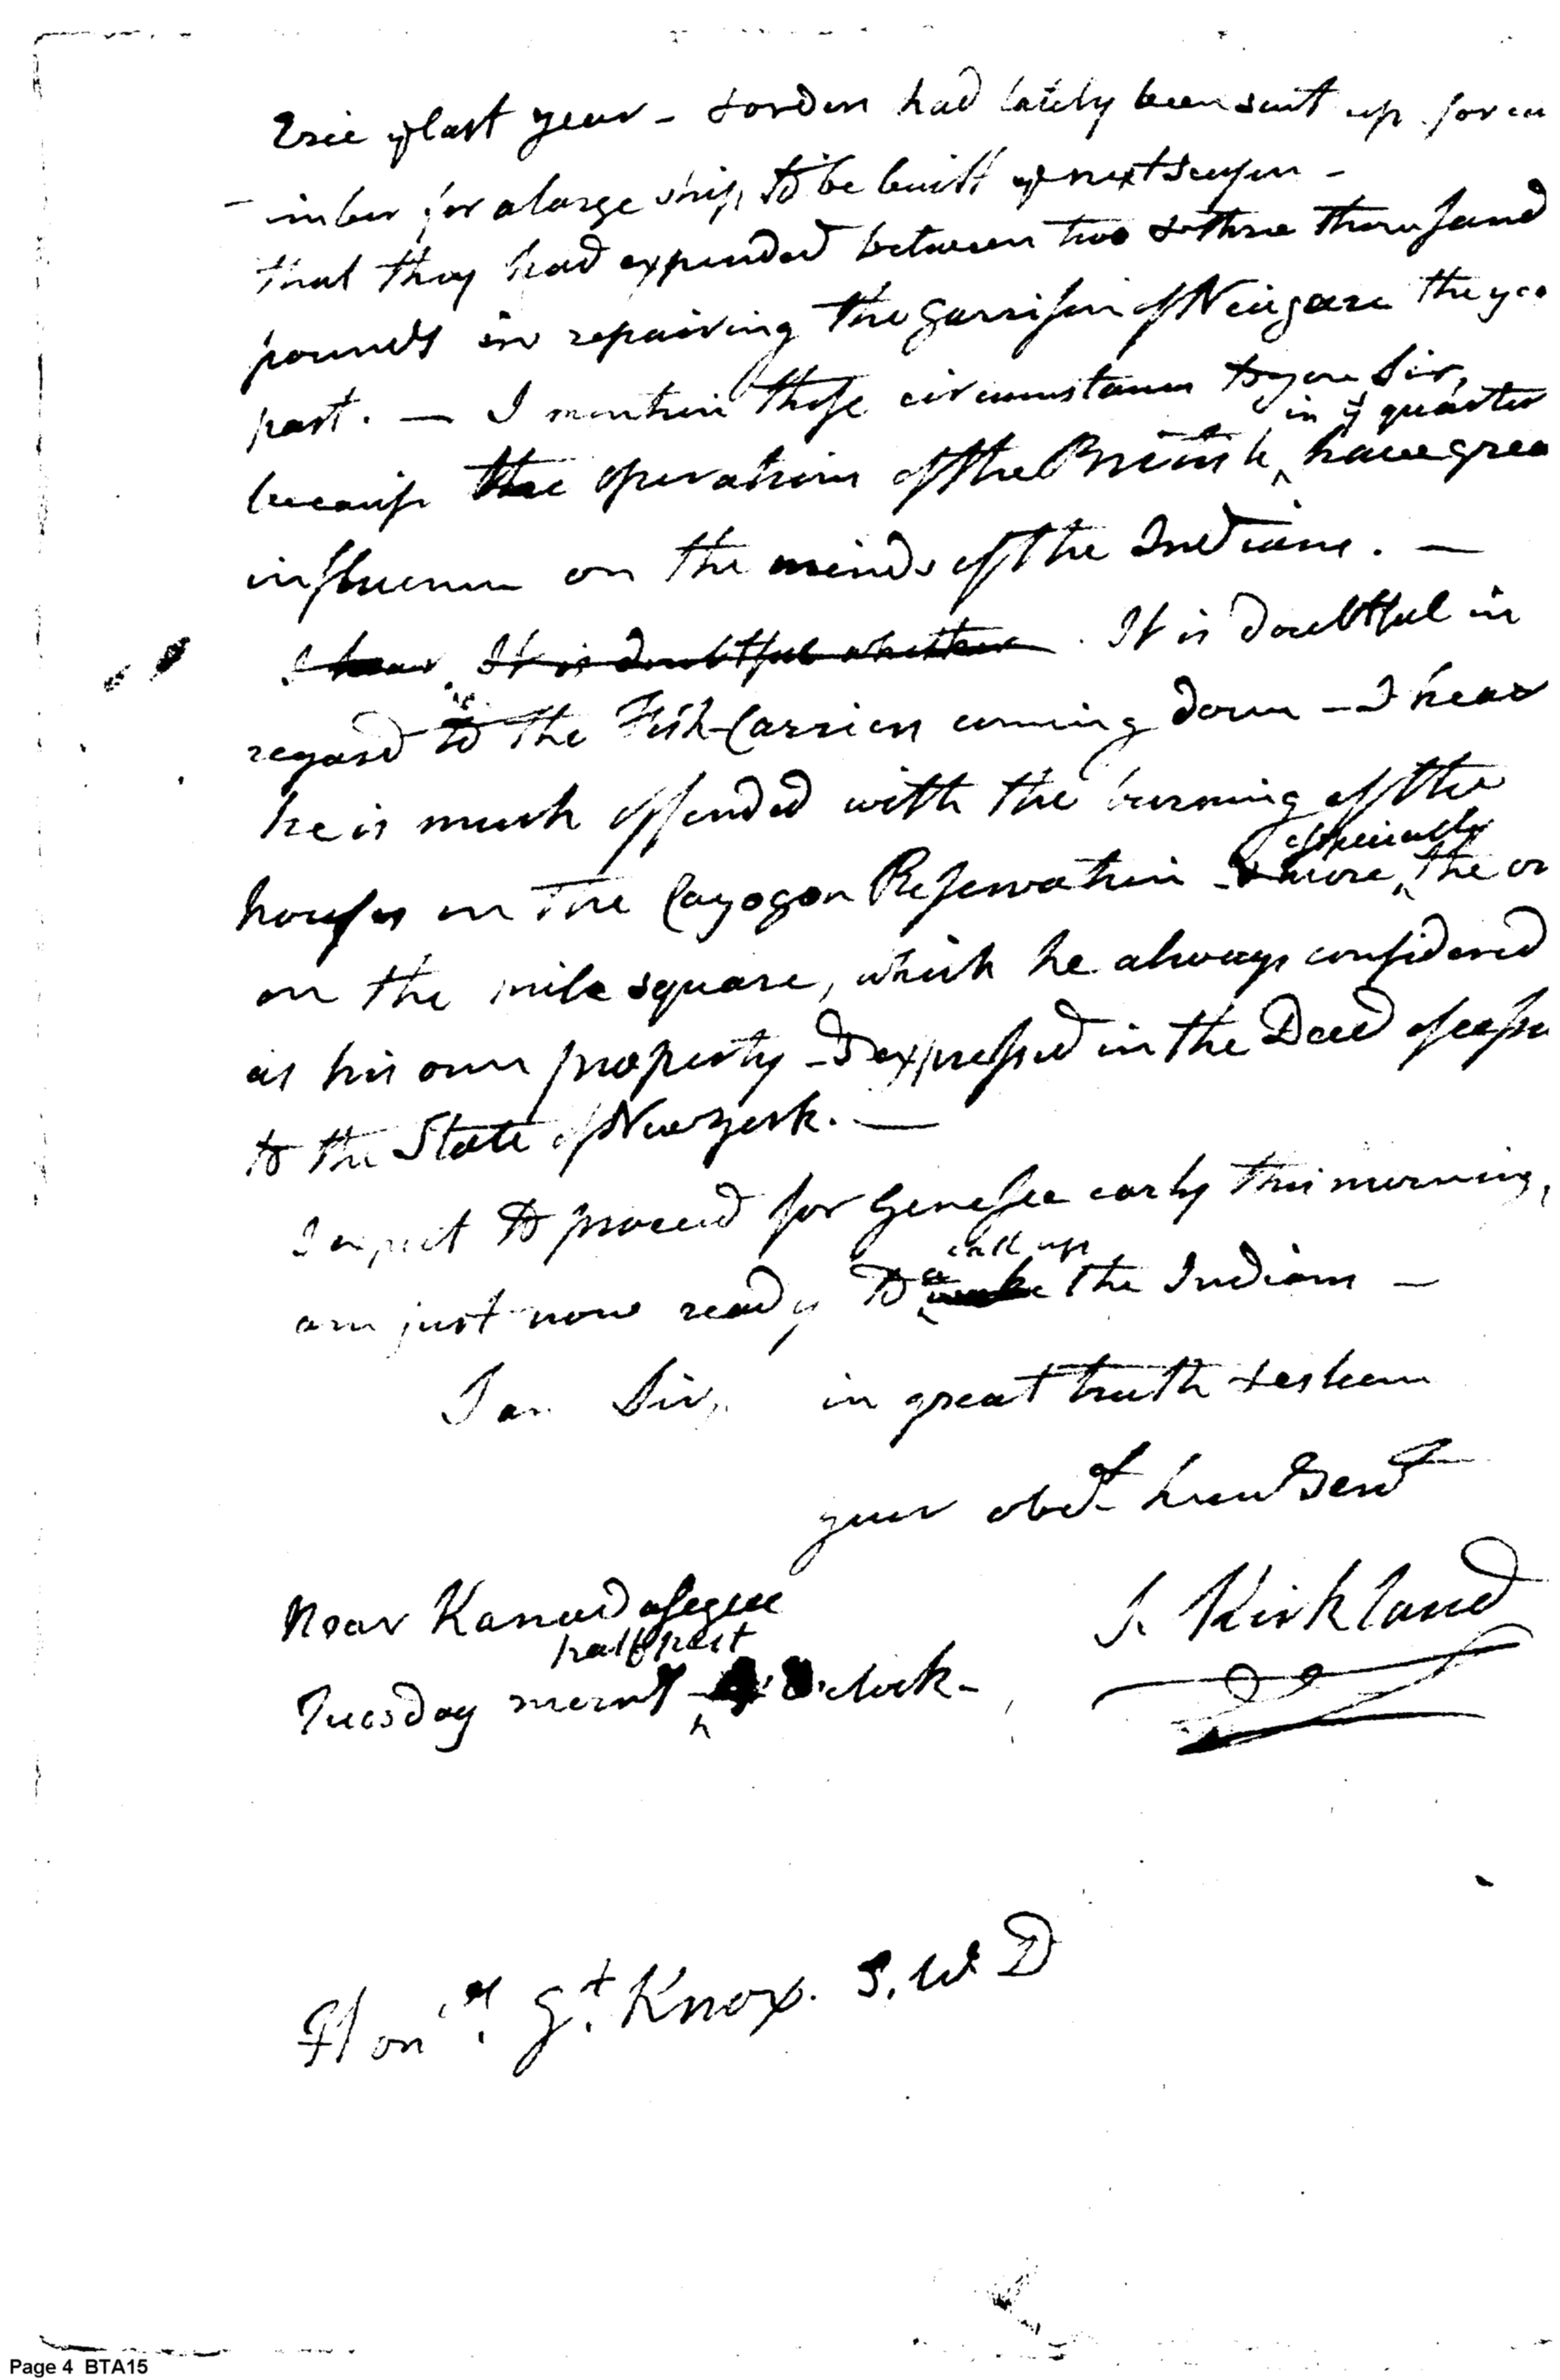 Erie ye last year – & orders had lately been sent up for
imber for a large ship to be built ye next season –
that they had expended between two & three thousand
pounds in repairing the Garrison of Neigara the yea
past. — I mention these circumstances to you Sir,
in ye quarter
because the operations of the British ^ have grea
influence on the minds of the Indians. —
I hear It is doubtful whether . It is doubtful in
regard to the Fish-Carriers coming down – I hear
he is much offended with the burning of the
especially
houses on the Cayogoa Reservation – & more ^ the on
on the mile square, which he always considered
as his own property – & expressed in the Deed of cessi
to the State of New York. —
I expect to proceed for Genesee early this morning,
call up
am just now ready to the Indians –
I am Sir, in great truth & esteem
your obdt humb Servt
Near Kanadasegue S. Kirkland
half past
Tuesday morng – ^ o'clock –
Honl. Gl. Knox. S. W. D
Page 4 BTA15